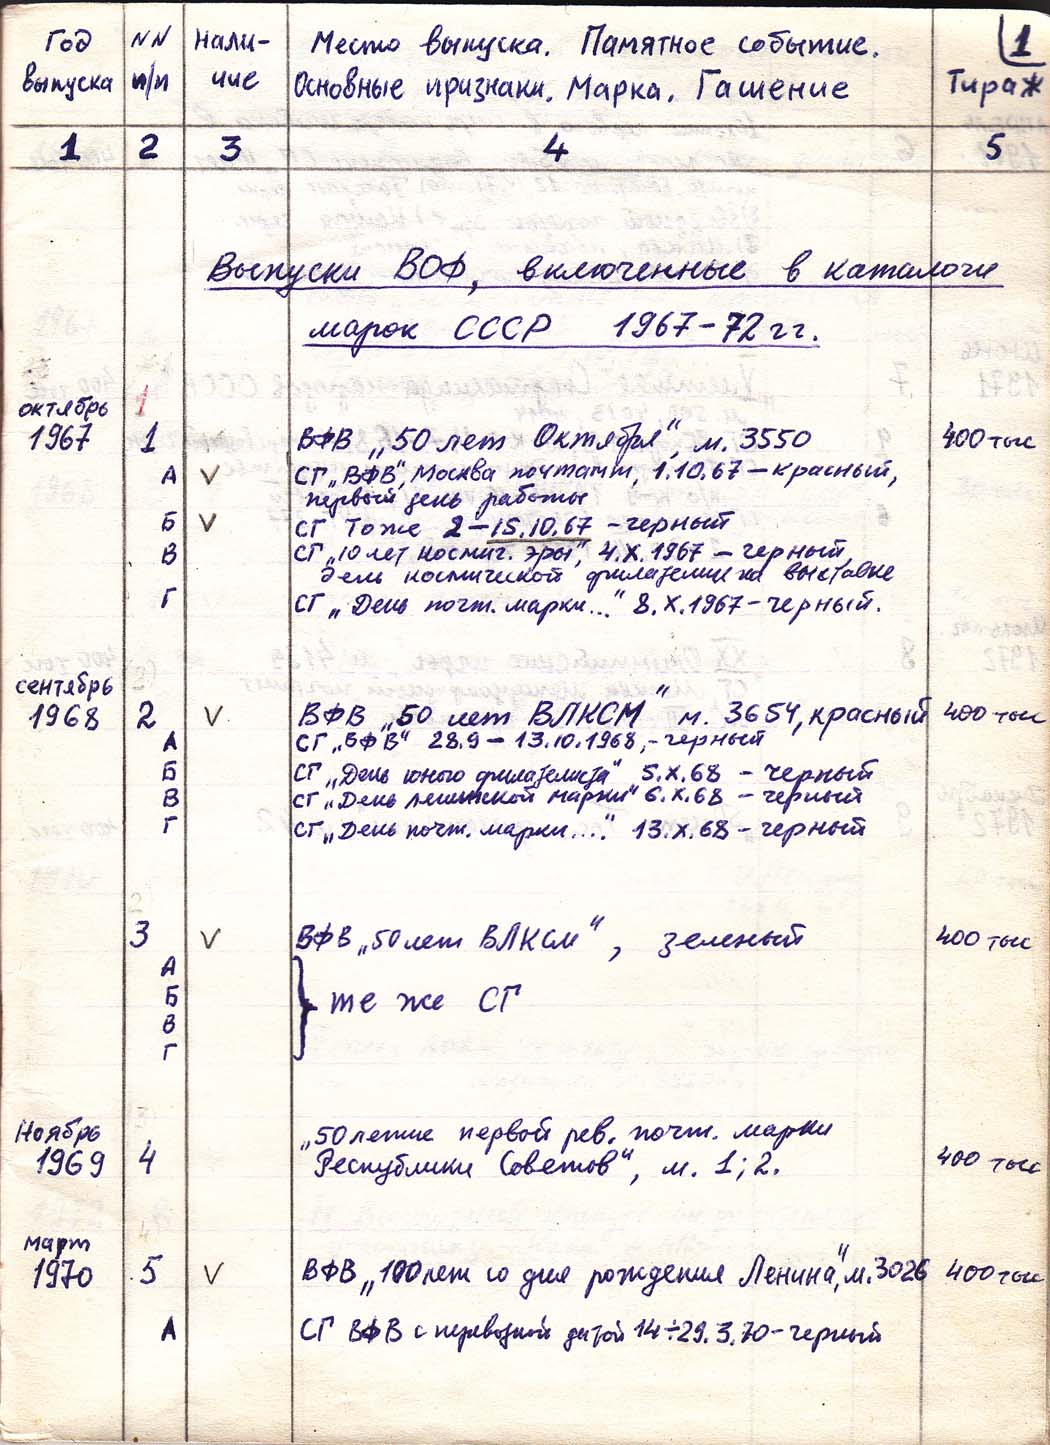 Год NN Нали- Место выпуска. Памятное событие. 1
выпуска п/п чие Основные признаки. Марка. Гашение Тираж
1 2 3 4 5
Выпуски ВОФ, включенные в каталоги
марок СССР 1967-72 гг.
октябрь 1
1967 1 ВФВ „50 лет Октября", м. 3550 400 тыс
А V СГ „ВФВ", Москва почтамт, 1.10.67 – красный,
первый день работы
Б V СГ То же 2 – 15.10.67 – черный
В СГ „10 лет космич. эры", 4.X.1967 – черный,
день космической филателии на выставке
Г СГ „День почт. марки..." 8.X.1967 – черный.
сентябрь
1968 2 V ВФВ „50 лет ВЛКСМ" м. 3654, красный 400 тыс
А СГ „ВФВ" 28.9 – 13.10.1968, – черный
Б СГ „День юного филателиста" 5.X.68 – черный
В СГ „День ленинской марки" 6.X.68 – черный
Г СГ „День почт. марки...." 13.X.68 – черный
3 V ВФВ „50 лет ВЛКСМ", зеленый 400 тыс
А
Б } те же СГ
В
Г
Ноябрь „50летие первой рев. почт. марки
1969 4 Республики Советов", м. 1; 2. 400 тыс
март
1970 5 V ВФВ „100 лет со дня рождения Ленина", м. 3026 400 тыс
А СГ ВФВ с переводной датой 14÷29.3.70 – черный